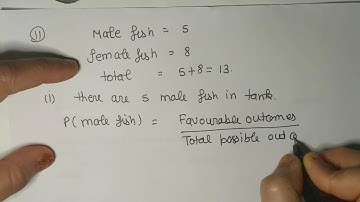 (11) Male fish = 5
female fish = 8
total = 5+8 = 13.
(1) there are 5 male fish in tank.
P(male fish) = Favourable outcomes
Total possible out